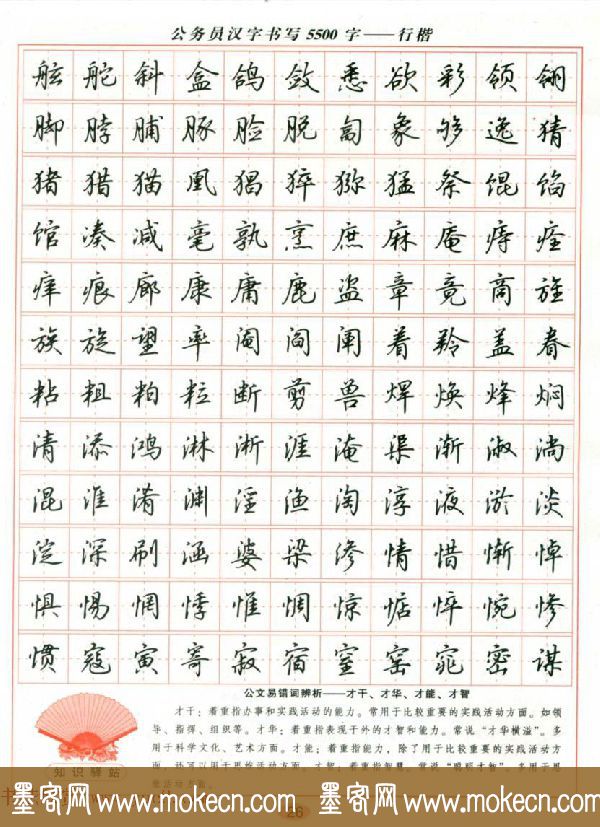 公务员汉字书写5500字——行楷
舷 舵 斜 盒 鸽 敛 悉 欲 彩 领 翎
脚 脖 脯 豚 脸 脱 匐 象 够 逸 猜
猪 猎 猫 凰 猖 猝 猕 猛 祭 馄 馅
馆 凑 减 毫 孰 烹 庶 麻 庵 痔 痊
痒 痕 廊 康 庸 鹿 盗 章 竟 商 旌
族 旋 望 率 阄 阎 阐 着 羚 盖 眷
粘 粗 粕 粒 断 剪 兽 焊 焕 烽 焖
清 添 鸿 淋 淅 涯 淹 渠 渐 淑 淌
混 淮 淆 渊 淫 渔 淘 淳 液 淤 淡
淀 深 涮 涵 婆 梁 渗 情 惜 惭 悼
惧 惕 惘 悸 惟 惆 惊 惦 悴 惋 惨
惯 寇 寅 寄 寂 宿 窒 窑 窕 密 谋
公文易错词辨析——才干、才华、才能、才智
才干：着重指办事和实践活动的能力。常用于比较重要的实践活动方面。如领
导、指挥、组织等。才华：着重指表现于外的才智和能力。常说“才华横溢”。多
用于科学文化、艺术方面。才能：着重指能力，除了用于比较重要的实践活动方
知识驿站
26
墨客网 www.mokecn.com 墨客网 www.mokecn.com